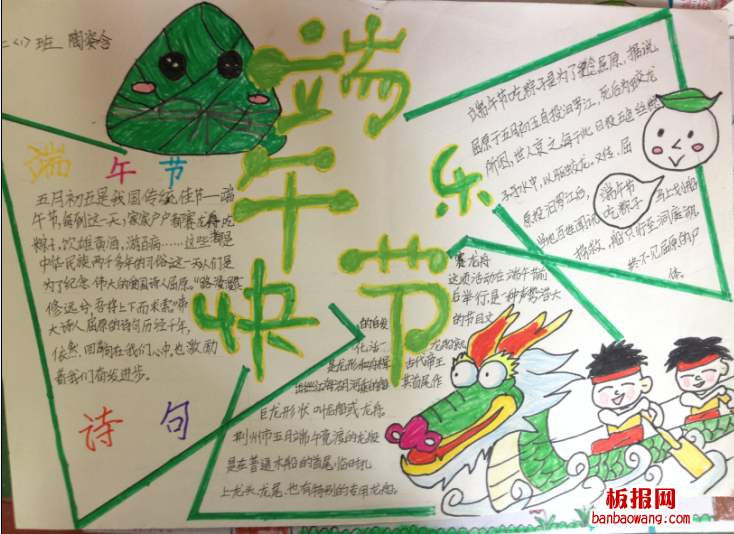 二(1)班 陶姿含
端午节快乐
端 午 节
五月初五是我国传统佳节——端
午节,每到这一天,家家户户都赛龙舟,吃
粽子,饮雄黄酒,游百病……这些都是
中华民族两千多年的习俗,这一天人们是
为了纪念伟大的爱国诗人屈原。"路漫漫其
修远兮,吾将上下而求索"
大诗人屈原的诗句历经千年,
依然回响在我们心中,也激励
着我们奋发进步。
诗 句
端午节吃粽子是为了纪念屈原,据说,
屈原于五月初五自投汨罗江,死后为蛟龙
所困,世人哀之,每于此日投五色丝
子于水中,以驱蛟龙。又传,屈
原投汨罗江后,
当地百姓闻讯马上划船
捞救,船只行至洞庭湖,
终不见屈原的尸
体。
端午节
吃粽子
赛龙舟
这项活动在端午节前
后举行,是一种声势浩大
的节目
古代帝王
巨龙形状叫龙船或龙舟。
荆州市五月端午竞渡的龙船
是在普通木船的首尾临时扎
上龙头、龙尾,也有特别的专用龙船。
板报网
banbaowang.com